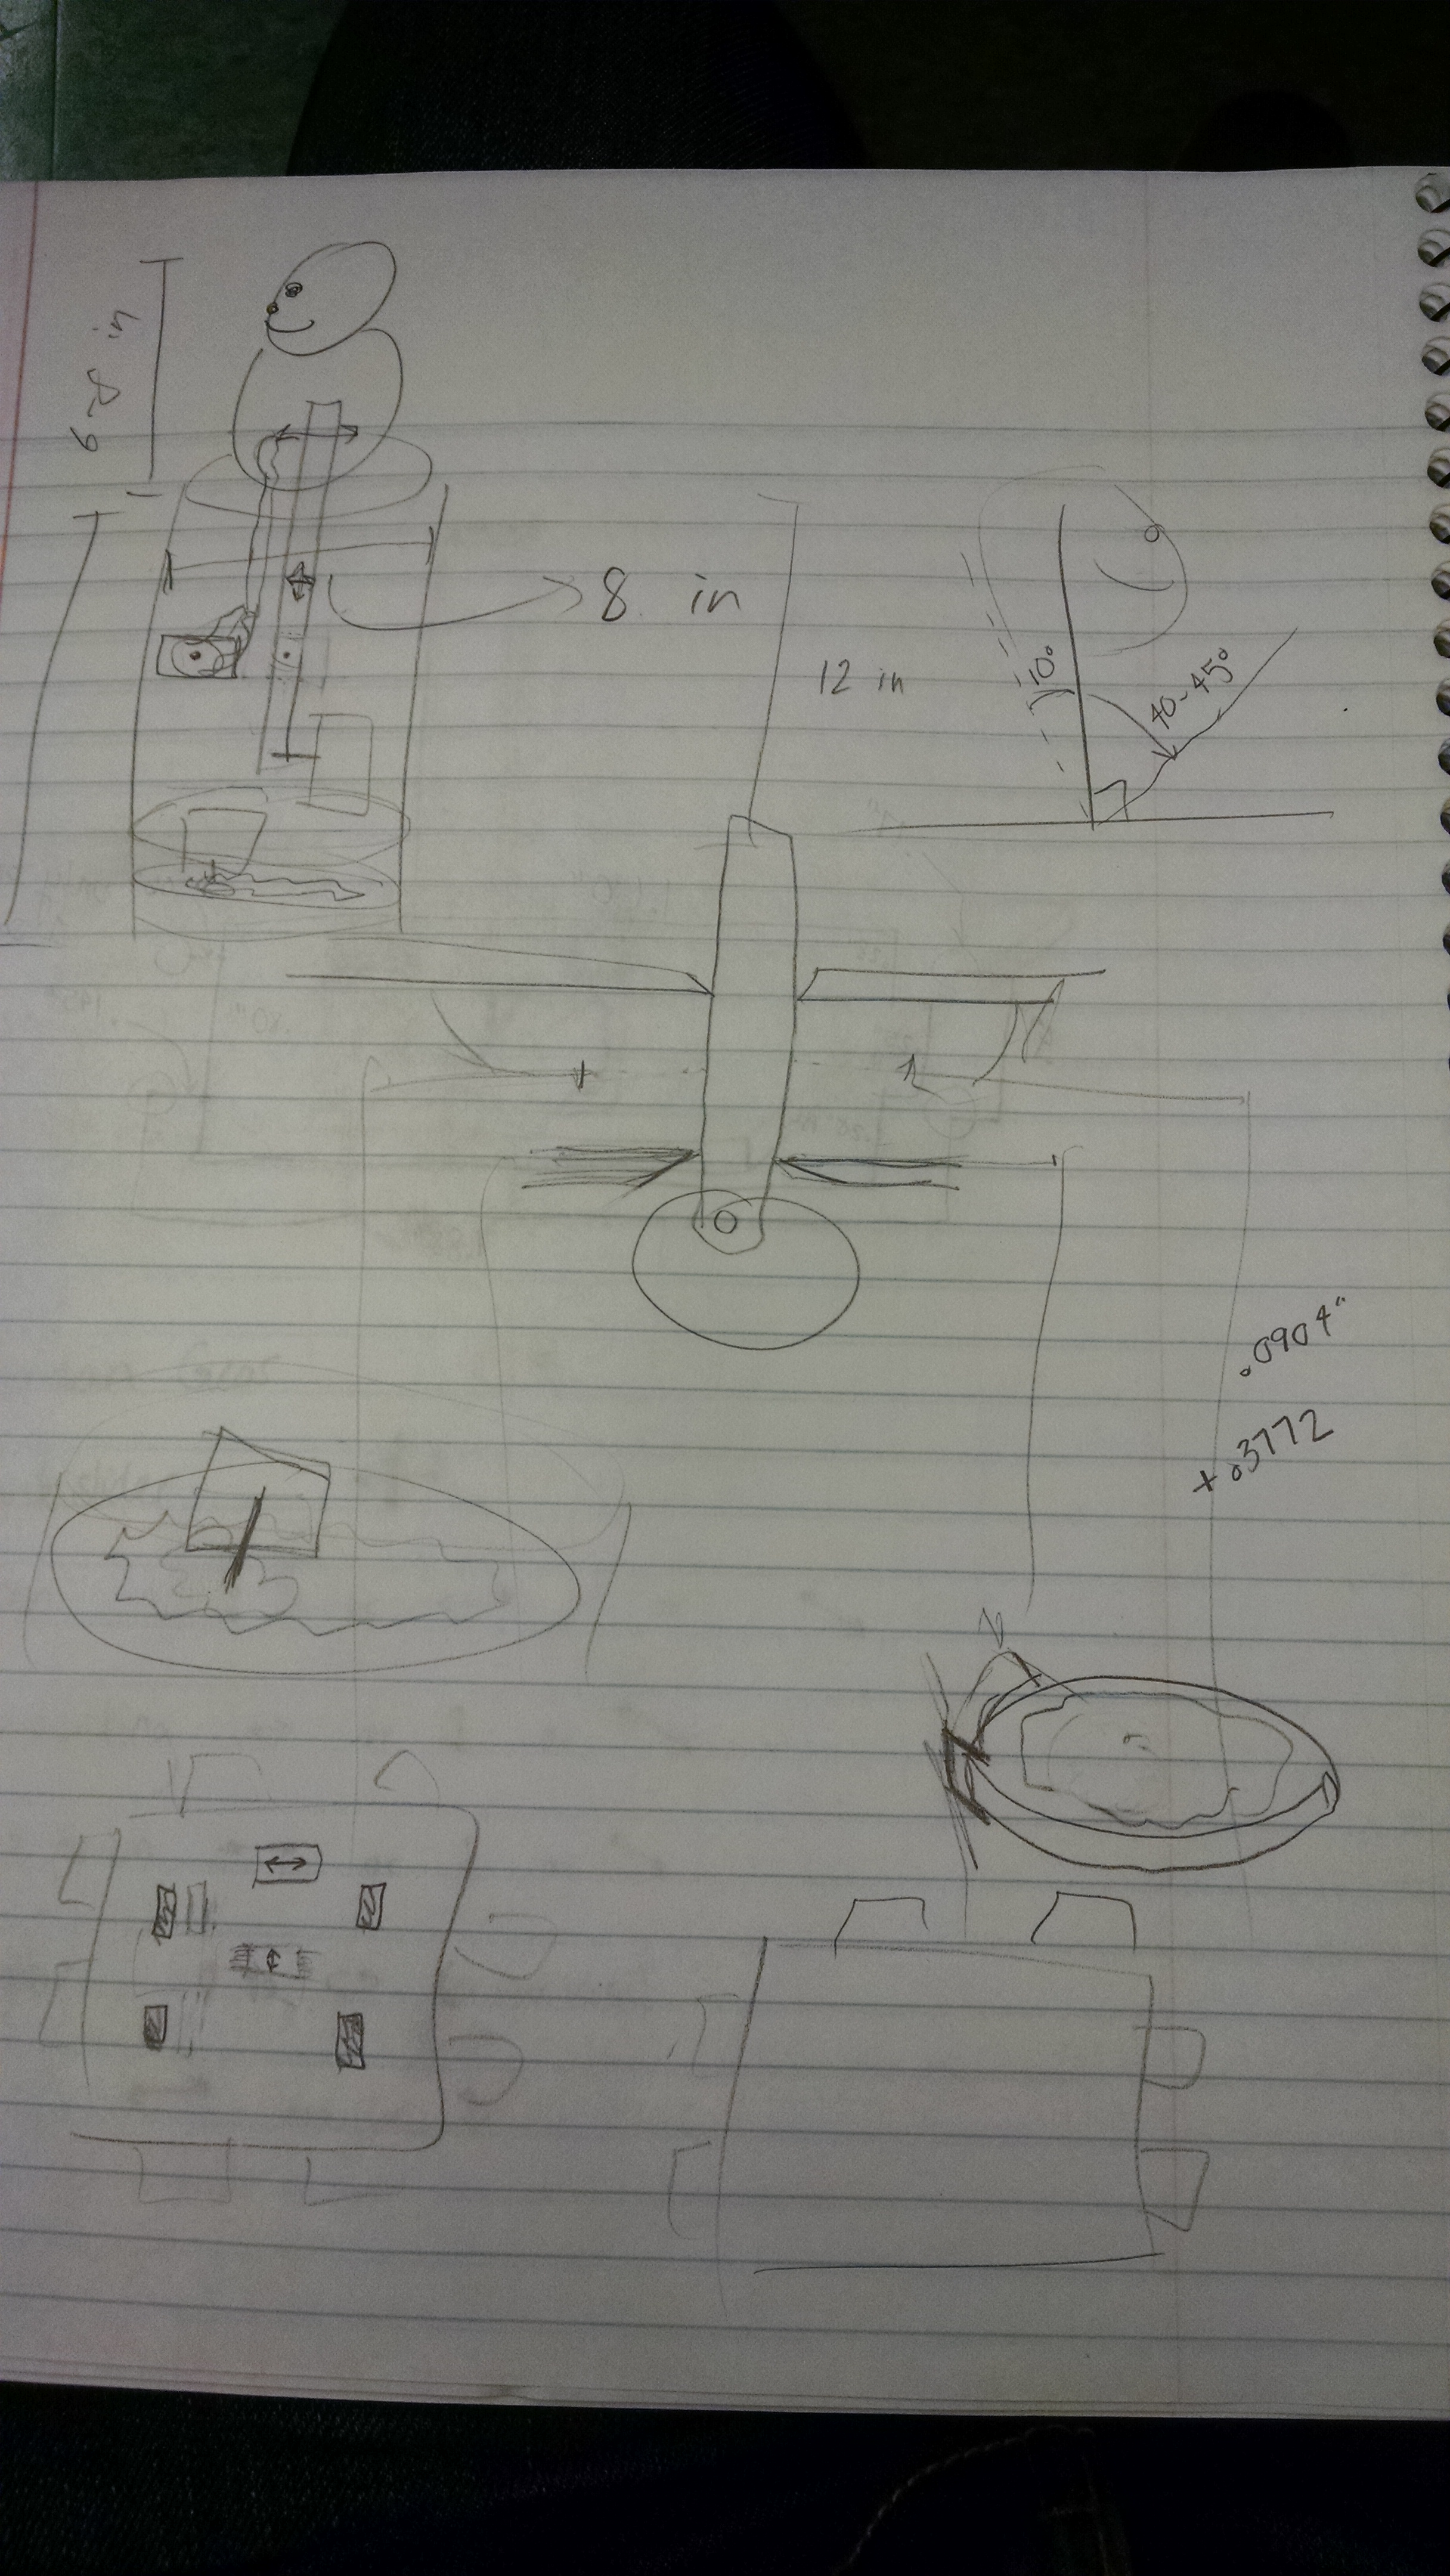 6-8 in
8 in
12 in
10°
40-45°
.0904"
+.3772